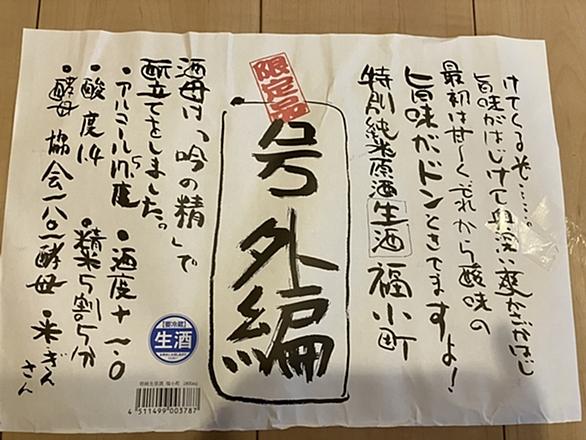 けてくるぞ……。
旨味がはじけて奥深い爽かさがはじ
最初は甘〜くそれから酸味の
旨味がドンときてますよ!
特別純米原酒 生酒 福小町
限定品
号外編
酒母は、「吟の精」で
酛立てをしました。
・アルコール17.5度 ・酒度+1.0
・酸度1.4 ・精米5割5分
・酵母 協会一八〇一酵母 ・米ぎん
さん
【要冷蔵】
生酒
福小町 1800ml
4 511499 003787